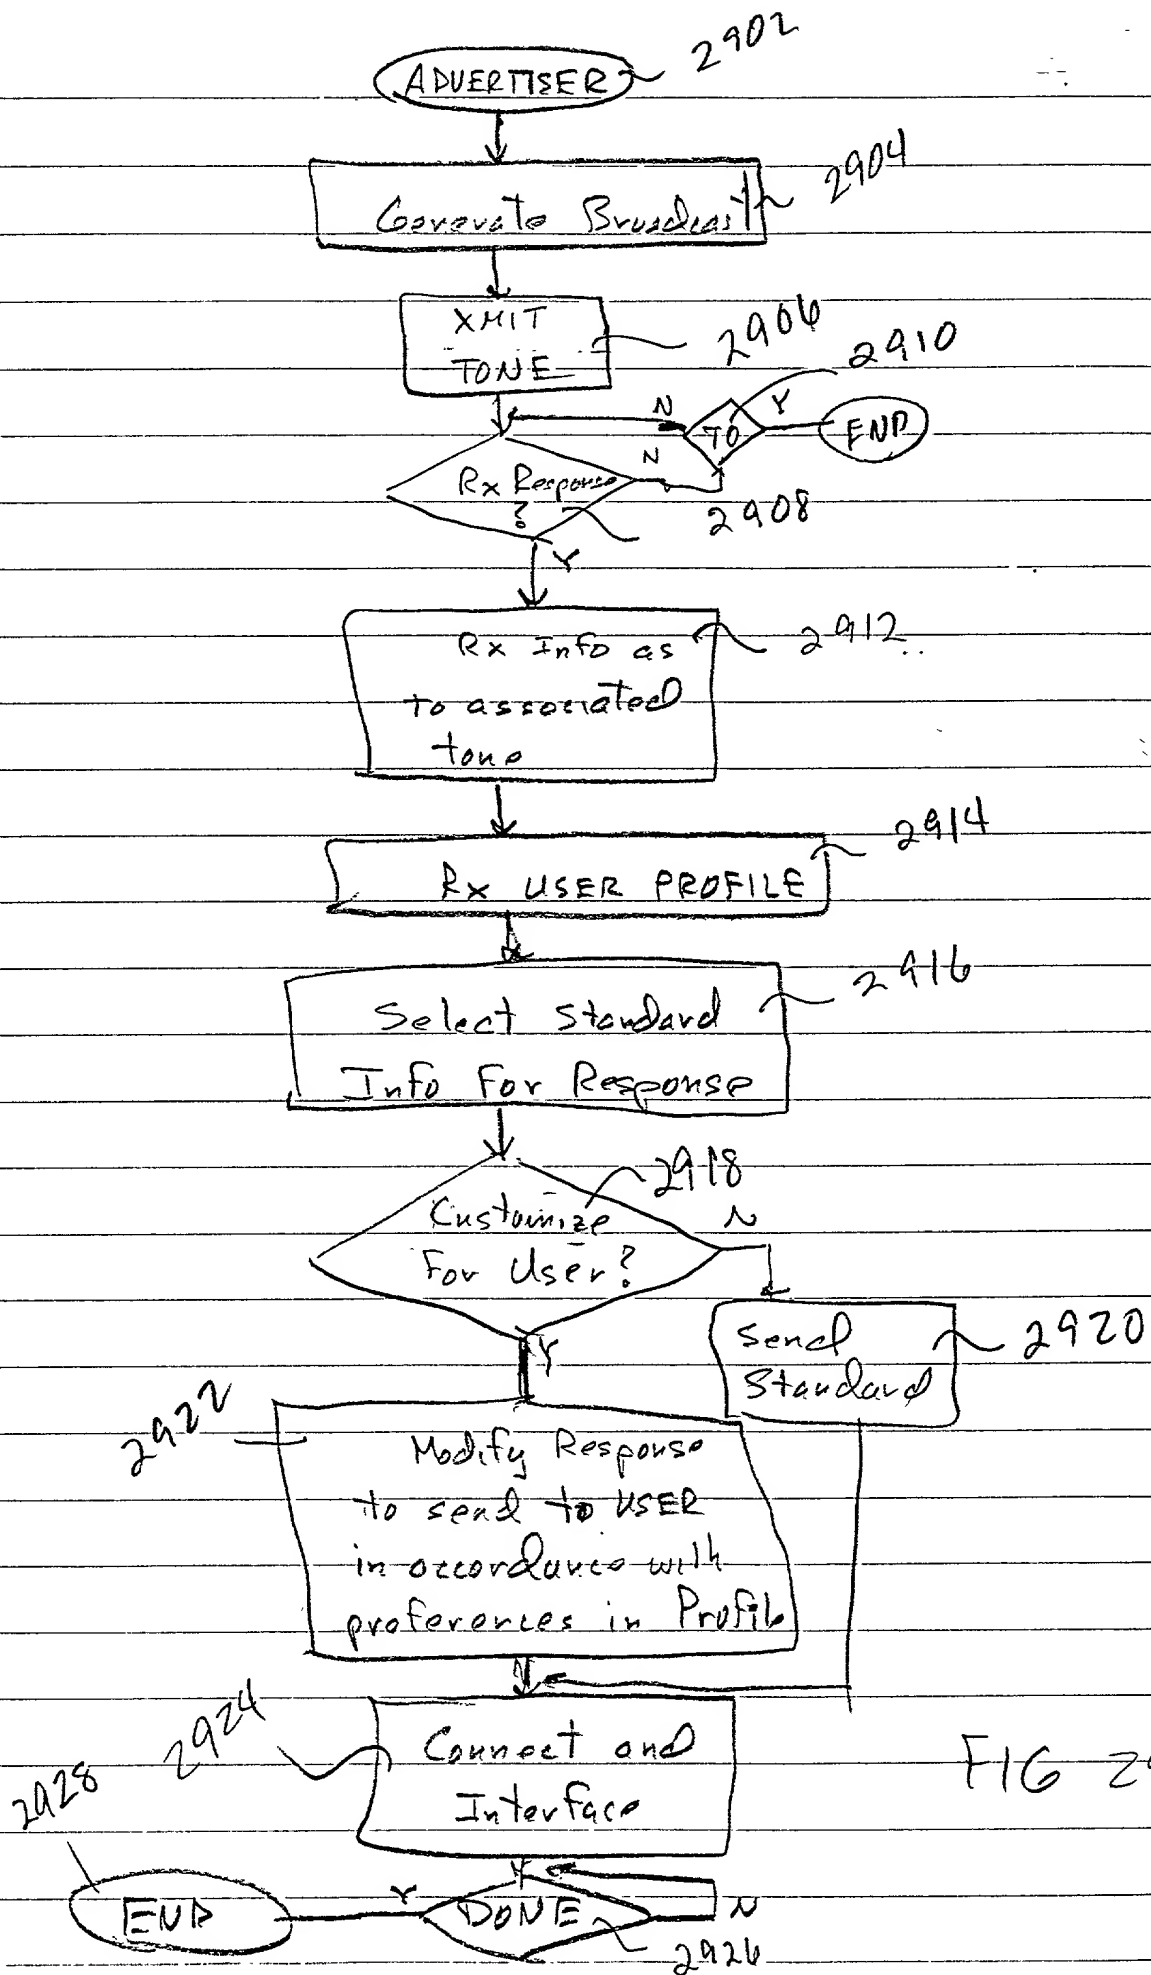 ADVERTISER
2902
Generate Broadcast
2904
XMIT
TONE
2906
2910
N
TO
Y
END
Rx Response
?
N
2908
Y
Rx Info as
to associated
tone
2912
Rx USER PROFILE
2914
Select Standard
Info For Response
2916
2918
Customize
For User?
N
Y
Send
Standard
2920
2922
Modify Response
to send to USER
in accordance with
preferences in Profile
2924
Connect and
Interface
FIG
2928
END
Y
DONE
N
2926